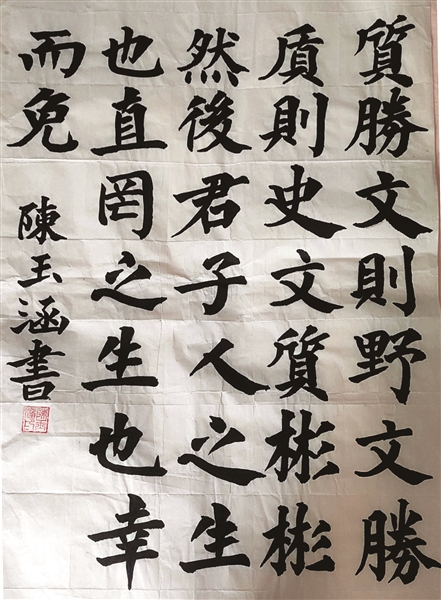 質勝文則野文勝
质則史文質彬彬
然後君子人之生
也直罔之生也幸
而免
陳玉涵書